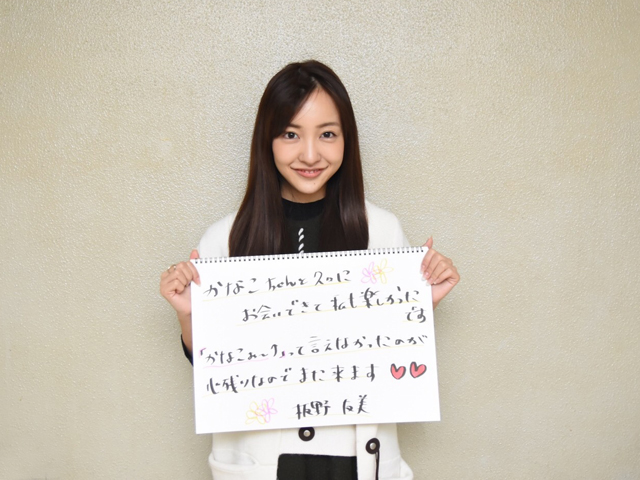 かなこちゃんと久々に
お会いできて私も楽しかった
です
「かなこぉ〜↑」って言えなかったのが
心残りなのでまた来ます
板野友美